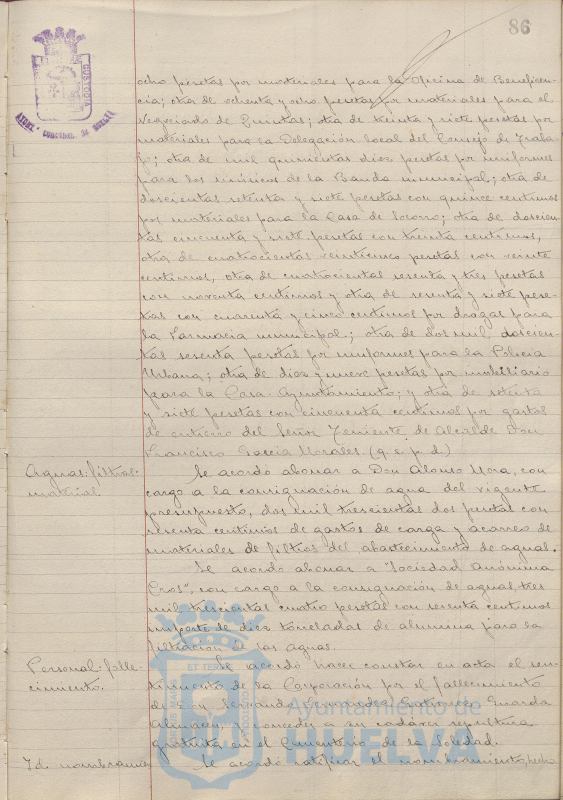 86
ocho pesetas por materiales para la Oficina de Beneficen-
cia; otra de ochenta y ocho pesetas por materiales para el
Negociado de Quintas; otra de treinta y siete pesetas por
materiales para la Delegación local del Consejo de Traba-
jo; otra de mil quinientas diez pesetas por uniformes
para los músicos de la Banda municipal; otra de
doscientas setenta y siete pesetas con quince centimos
por materiales para la Casa de Socorro; otra de doscien-
tas cincuenta y siete pesetas con treinta centimos,
otra de cuatrocientas veinticinco pesetas con veinte
centimos, otra de cuatrocientas sesenta y tres pesetas
con noventa centimos y otra de y siete pese-
tas con cuarenta y cinco centimos por drogas para
la Farmacia municipal; otra de dos mil doscien-
tas sesenta pesetas por uniformes para la Policia
Urbana; otra de diez y nueve pesetas por mobiliario
para la Casa Ayuntamiento; y otra de setenta
y siete pesetas con cincuenta centimos por gastos
de entierro del Señor Teniente de Alcalde Don
Francisco Garcia Morales (q. e. p. d.)
Aguas: filtros: material.
Se acordó abonar a Don Alonso Mora, con
cargo a la consignación de agua del vigente
presupuesto, dos mil trescientas dos pesetas con
sesenta centimos de gastos de carga y acarreo de
materiales de filtros del abastecimiento de aguas.
Se acordó abonar a "Sociedad Anónima
Cros", con cargo a la consignación de aguas, tres
mil trescientas cuatro pesetas con sesenta centimos
importe de diez toneladas de alumina para la
filtración de las aguas.
Personal: falle-
cimiento.
Se acordó hacer constar en acta el sen-
timiento de la Corporación por el fallecimiento
de Don Servando Fernandez Guarda
Almacen y conceder a su cadáver sepultura
gratuita en el Cementerio de la Soledad.
Id. nombramien
Se acordó ratificar el nombramiento, hecho
Ayuntamiento de
HUELVA